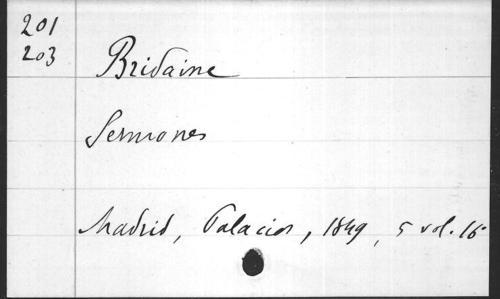 201
203
Bridaine
Sermones
Madrid, Palacios, 1849, 5 vol. 16º